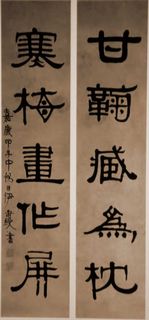 甘鞠藏為枕
寒梅畫作屏
嘉慶甲子中日伊書